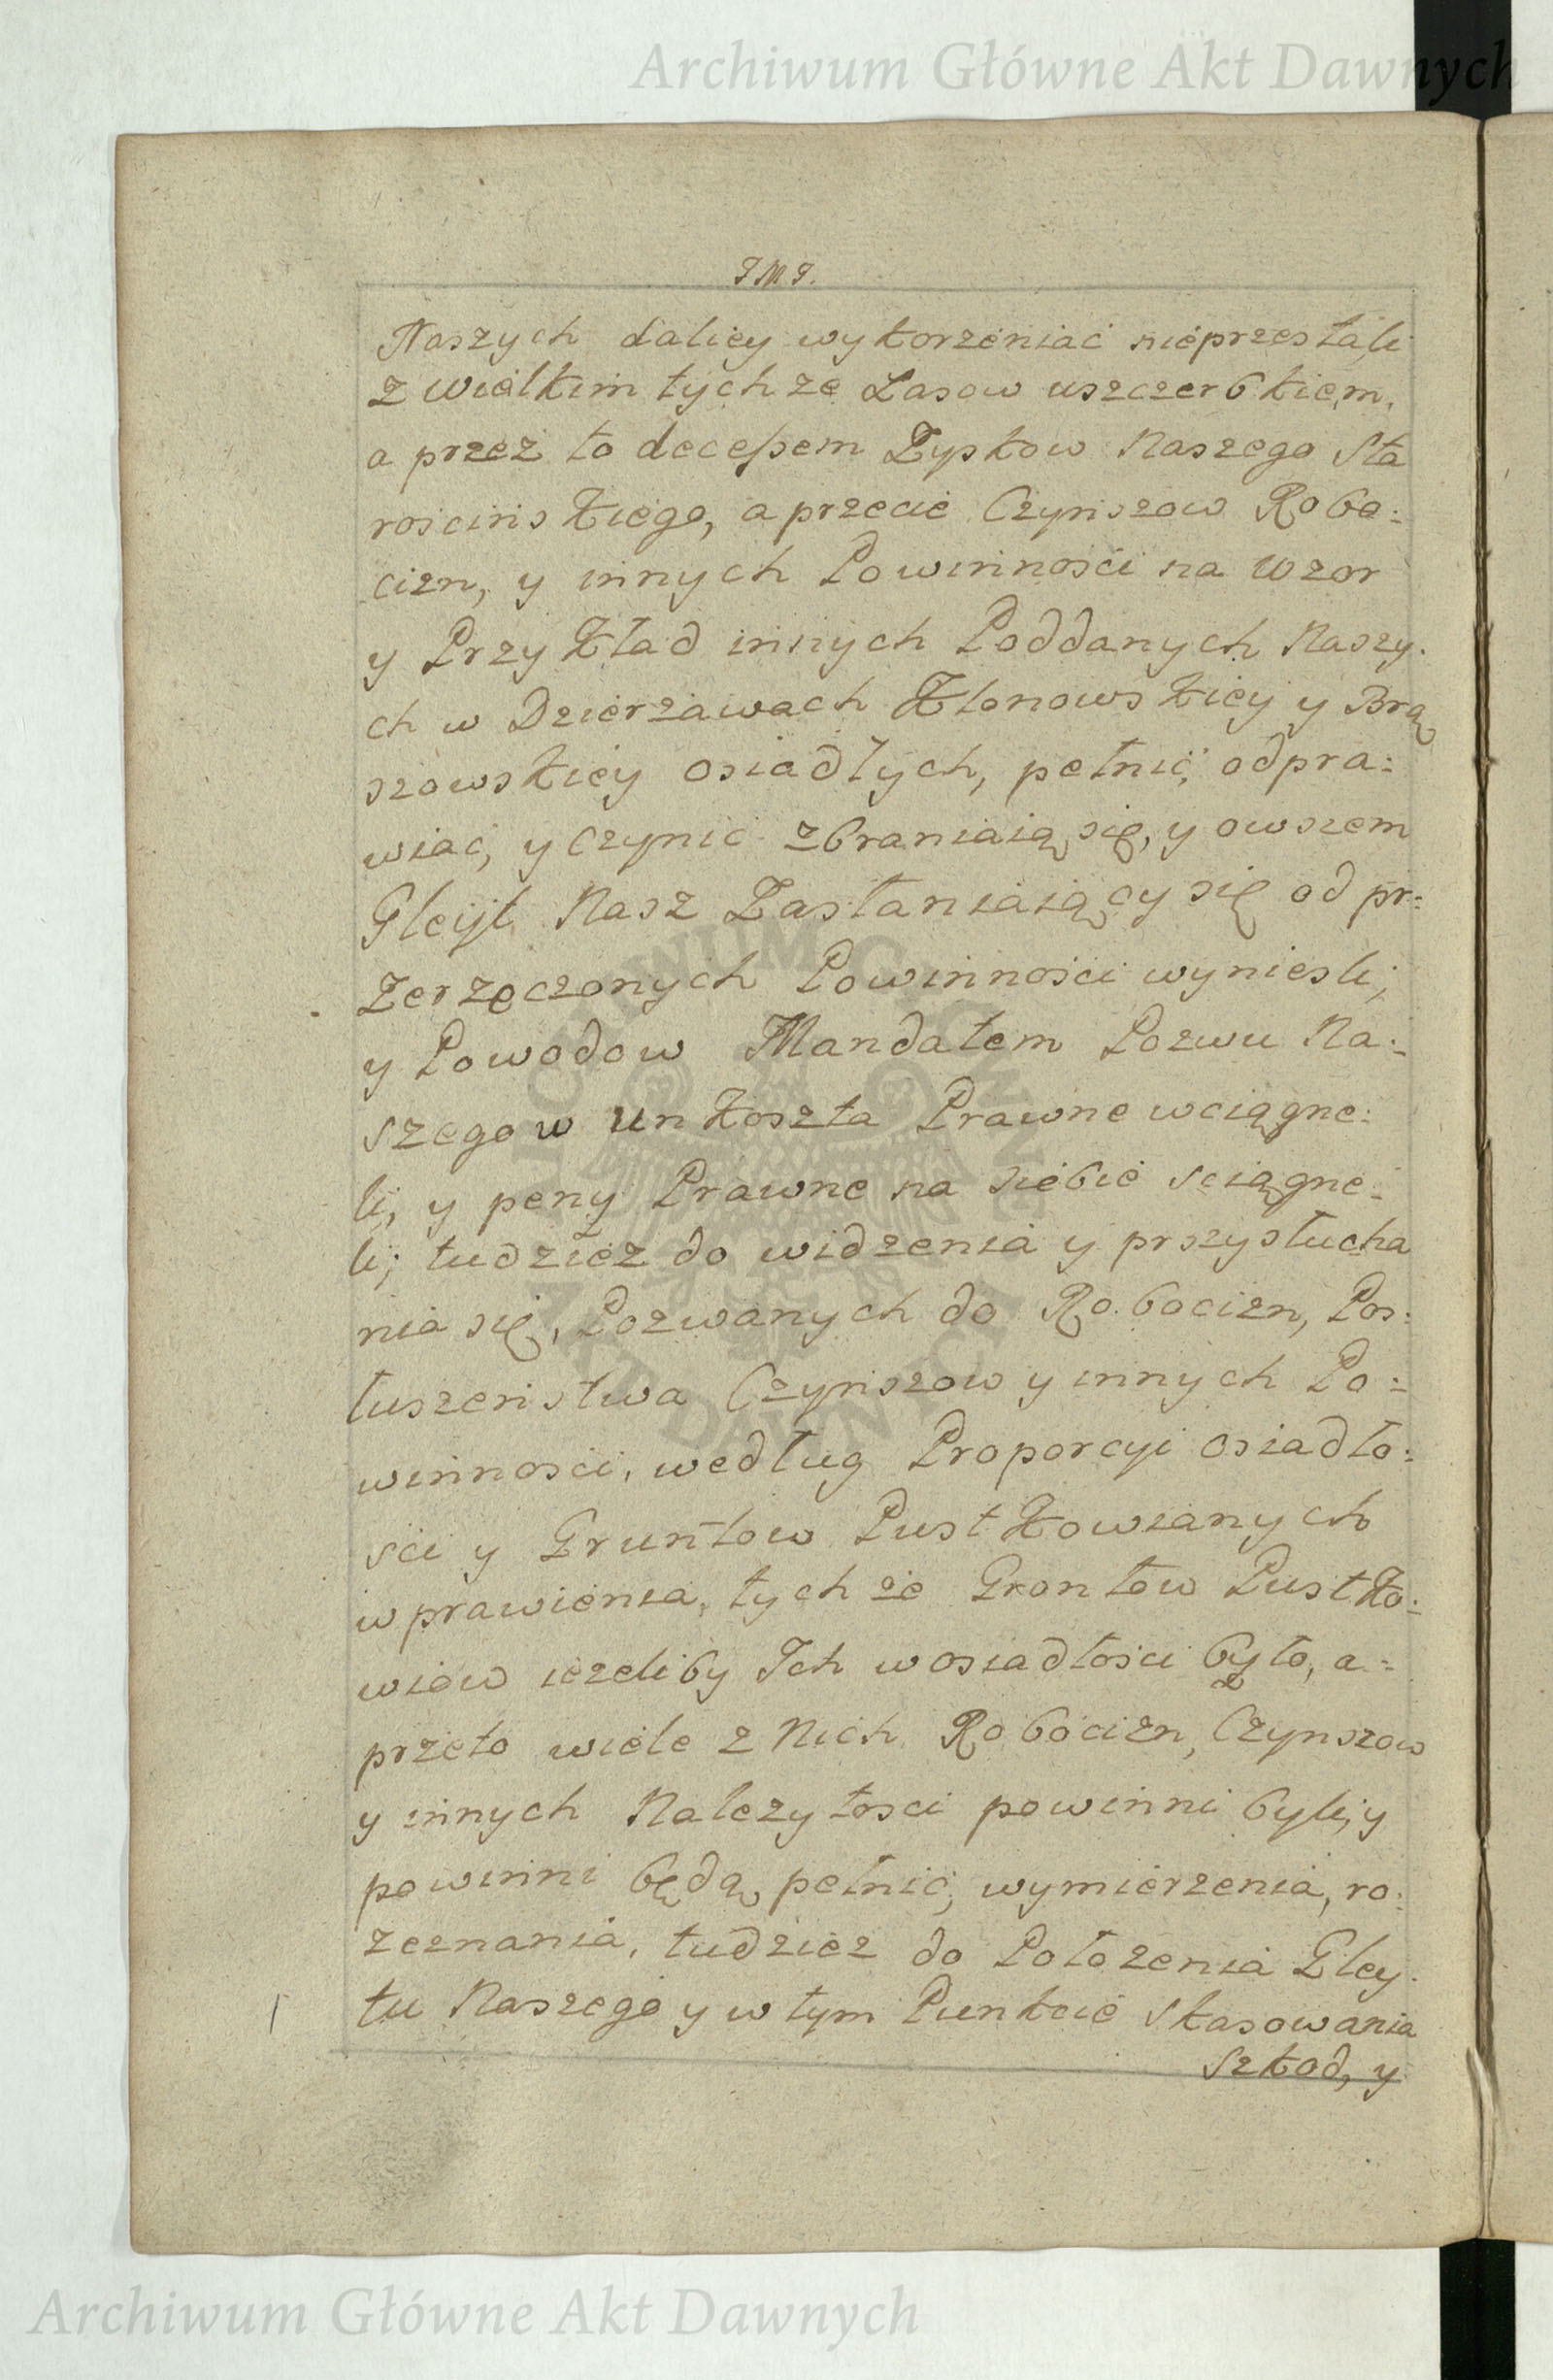 Archiwum Główne Akt Dawnych
J M J.
Naszych daliey wykorzeniać nieprzestali
z wielkim tychże Lasow uszczerbkiem,
a przez to decessem Zyskow Naszego Sta
rościńskiego, a przecie Czynszow Robo:
cizn, y innych Powinności na Wzor
y Przykład innych Poddanych Naszy.
ch w Dzierżawach Kłonowskiey y Brą
szowskiey osiadłych, pełnić, odpra:
wiać, y Czynić zbraniaią się, y owszem
Gleyt Nasz Zasłaniaiący się od pr:
zerzeczonych Powinności wyniesli;
y Powodow Mandatem Pozwu Na:
szego w unkoszta Prawne wciągne:
li, y peny Prawne na siebie sciągne:
li; tudzież do widzenia y przysłucha
nia się, Pozwanych do Robocizn, Pos:
łuszeństwa Czynszow y innych Po:
winności, według Proporcyi osiadło:
ści y Gruntow Pustkowianych
w prawienia, tychże Grontow Pustko:
wiow ieżeliby Ich w osiadłości było, a:
przeto wiele z Nich Robocizn, Czynszow
y innych Należytości powinni byli, y
powinni będą pełnić, wymierzenia, ro:
zeznania, tudzież do Położenia Gley.
tu Naszego y w tym Punkcie Skasowania
Szkod, y
ARCHIWUM GŁÓWNE AKT DAWNYCH
Archiwum Główne Akt Dawnych